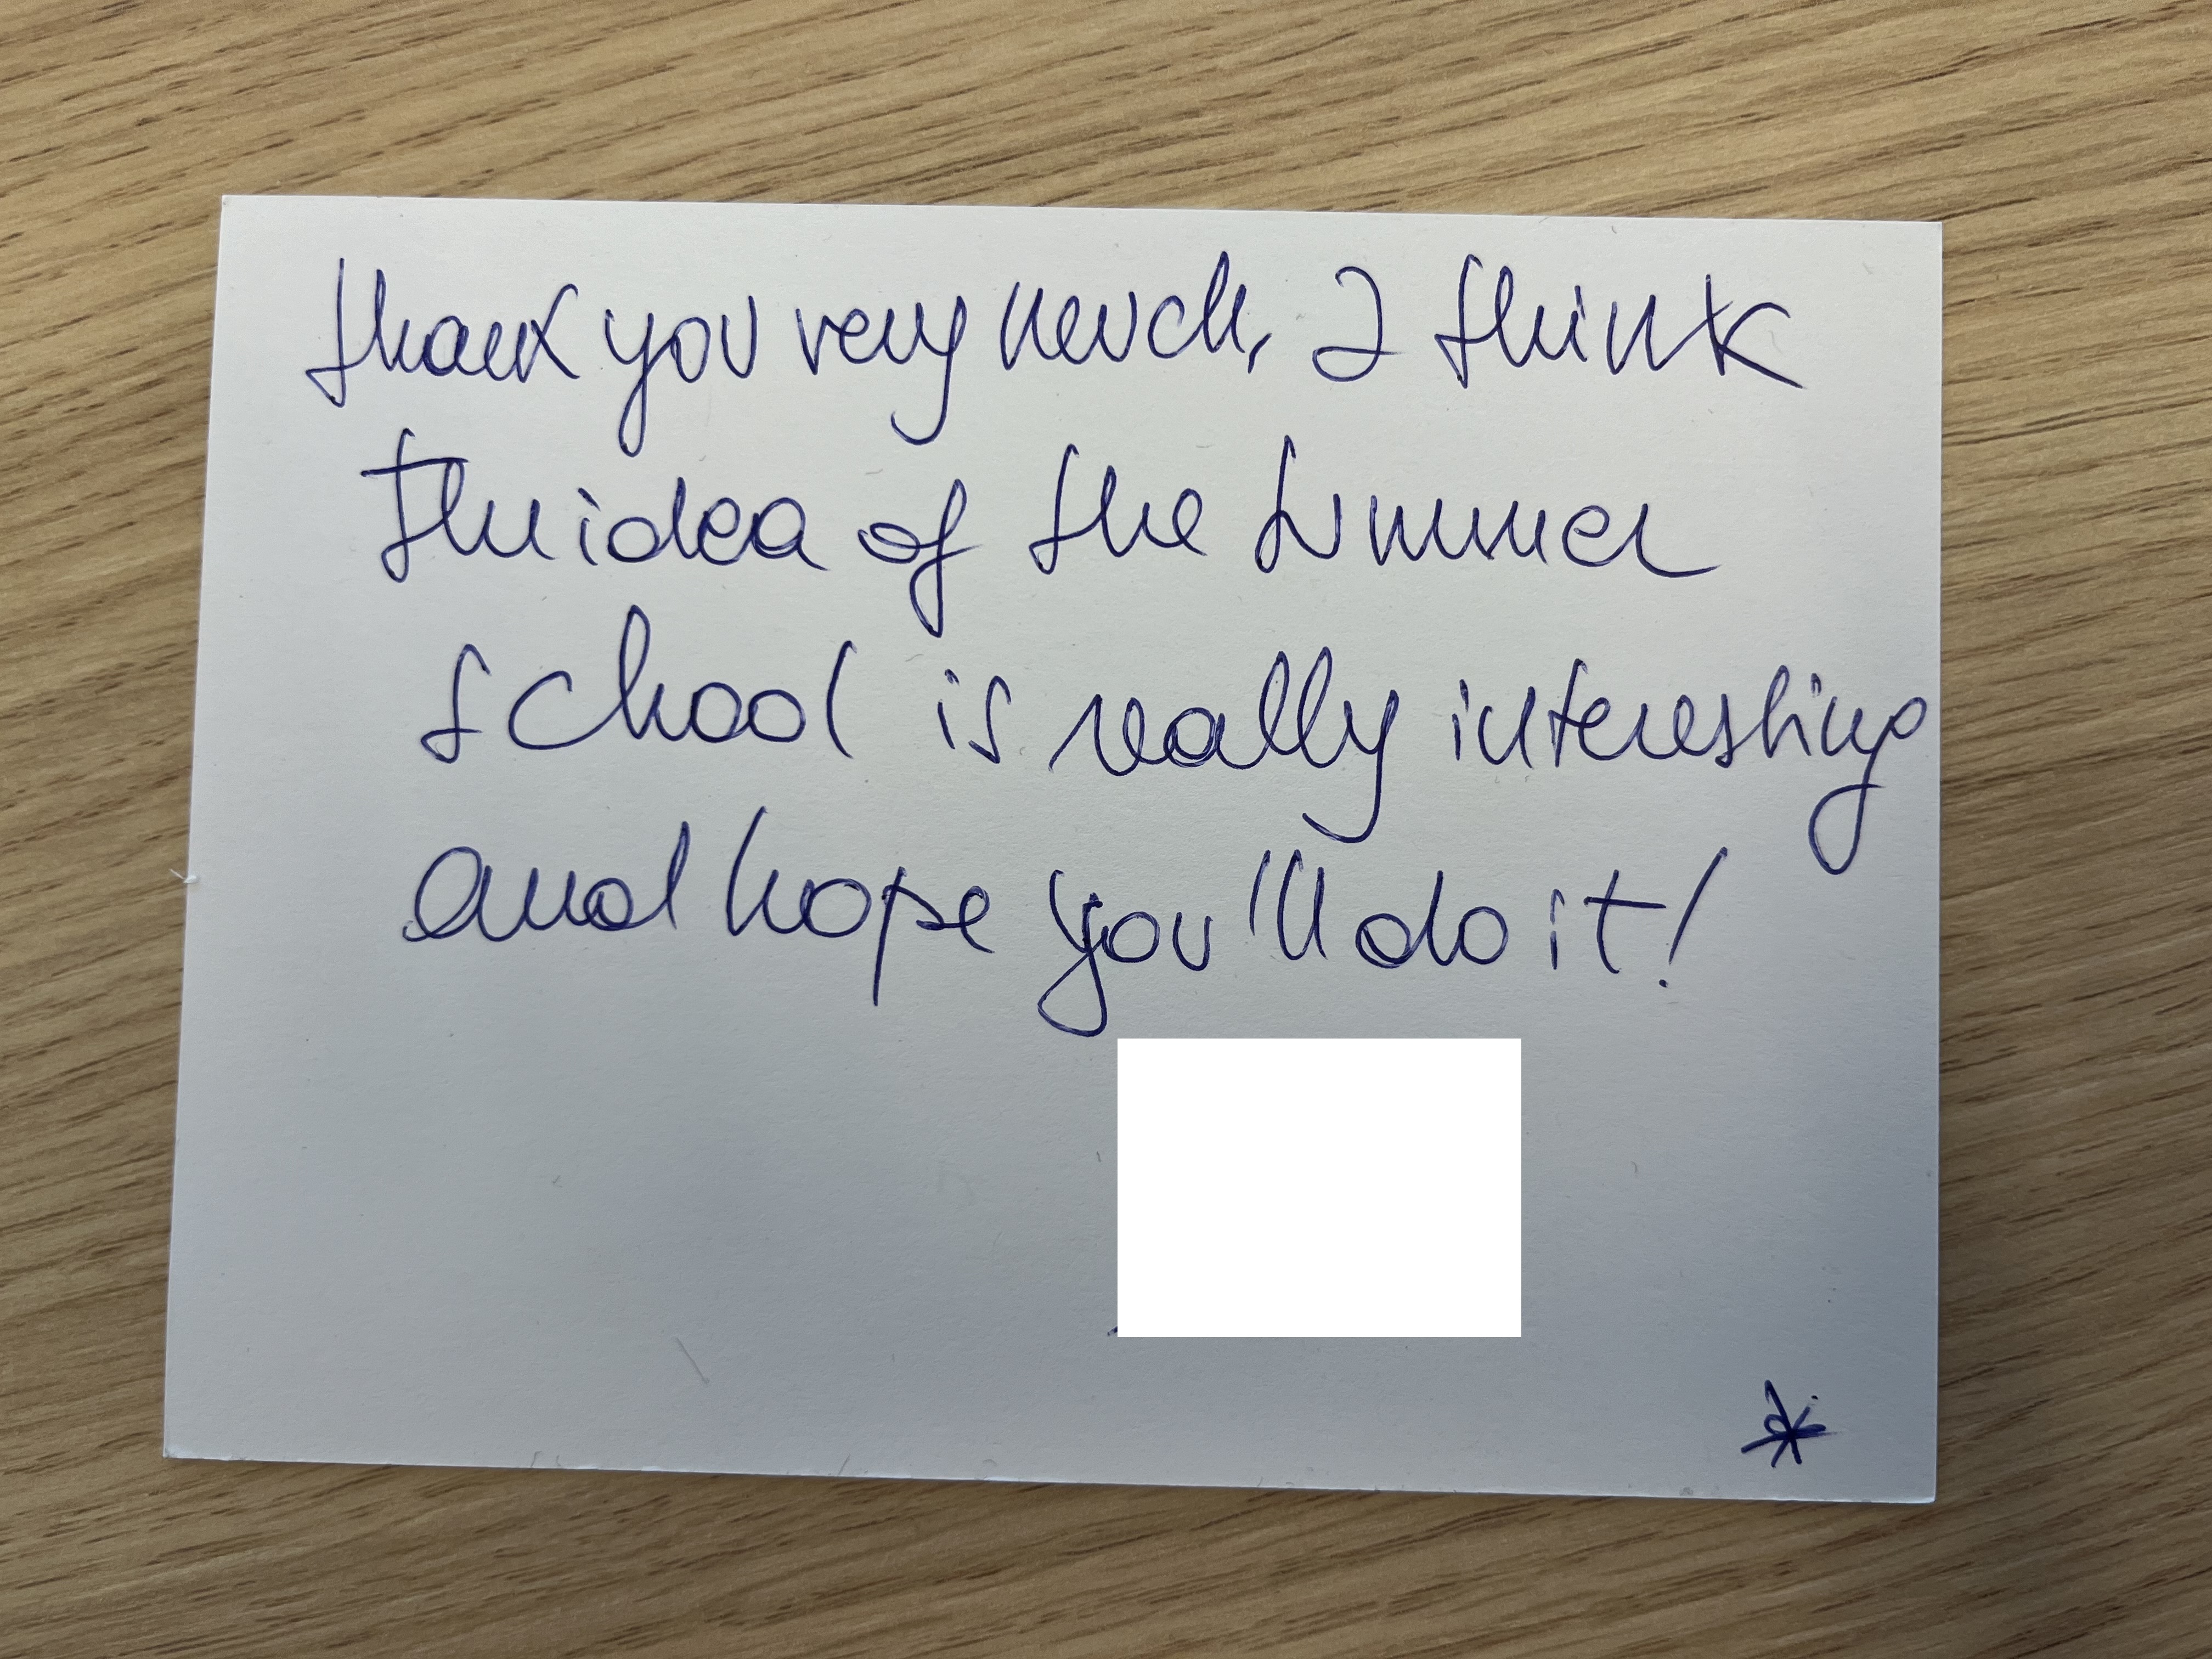 thank you very much, I think
the idea of the summer
school is really interesting
and hope you'll do it!
*